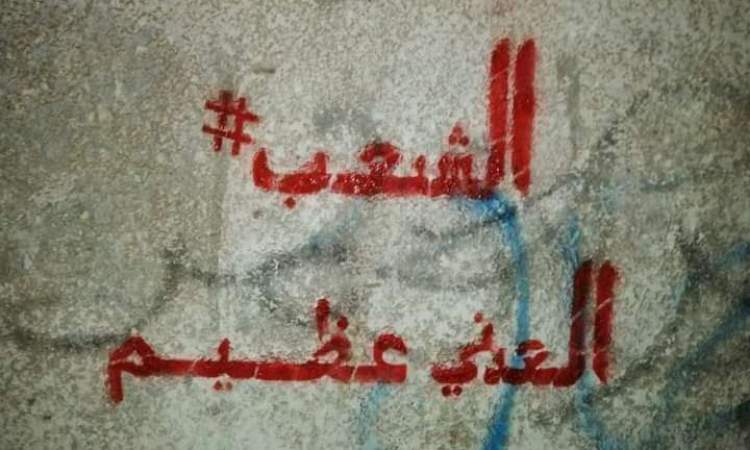 #الشعب
العدني عظيم